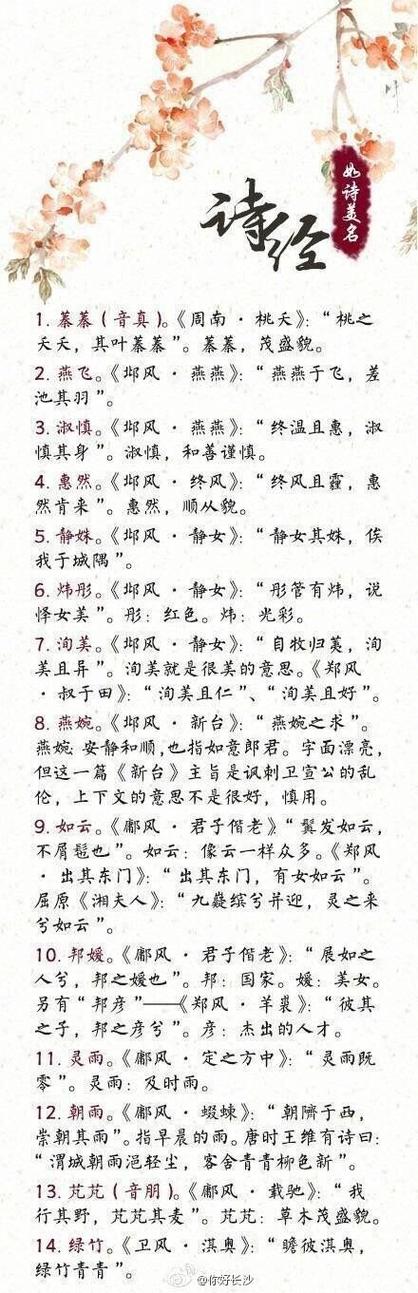 如诗美名
诗经
1. 蓁蓁（音真）。《周南·桃夭》：“桃之
夭夭，其叶蓁蓁”。蓁蓁，茂盛貌。
2. 燕飞。《邶风·燕燕》：“燕燕于飞，差
池其羽”。
3. 淑慎。《邶风·燕燕》：“终温且惠，淑
慎其身”。淑慎，和善谨慎。
4. 惠然。《邶风·终风》：“终风且霾，惠
然肯来”。惠然，顺从貌。
5. 静姝。《邶风·静女》：“静女其姝，俟
我于城隅”。
6. 炜彤。《邶风·静女》：“彤管有炜，说
怿女美”。彤：红色。炜：光彩。
7. 洵美。《邶风·静女》：“自牧归荑，洵
美且异”。洵美就是很美的意思。《郑风
·叔于田》：“洵美且仁”、“洵美且好”。
8. 燕婉。《邶风·新台》：“燕婉之求”。
燕婉 安静和顺，也指如意郎君。字面漂亮，
但这一篇《新台》主旨是讽刺卫宣公的乱
伦，上下文的意思不是很好，慎用。
9. 如云。《鄘风·君子偕老》“鬒发如云，
不屑髢也”。如云：像云一样众多。《郑风
·出其东门》：“出其东门，有女如云”。
屈原《湘夫人》：“九嶷缤兮并迎，灵之来
兮如云”。
10. 邦媛。《鄘风·君子偕老》：“展如之
人兮，邦之媛也”。邦：国家。媛：美女。
另有“邦彦”——《郑风·羊裘》：“彼其
之子，邦之彦兮”。彦：杰出的人才。
11. 灵雨。《鄘风·定之方中》：“灵雨既
零”。灵雨：及时雨。
12. 朝雨。《鄘风·蝃蝀》：“朝隮于西，
崇朝其雨”。指早晨的雨。唐时王维有诗曰：
“渭城朝雨浥轻尘，客舍青青柳色新”。
13. 芃芃（音朋）。《鄘风·载驰》：“我
行其野，芃芃其麦”。芃芃：草木茂盛貌。
14. 绿竹。《卫风·淇奥》：“瞻彼淇奥，
绿竹青青”。
@你好长沙